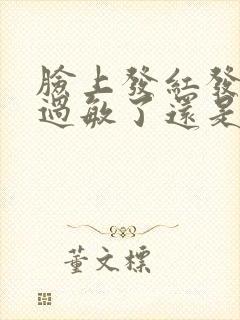 臉上發紅發
過敏了還是
董文標